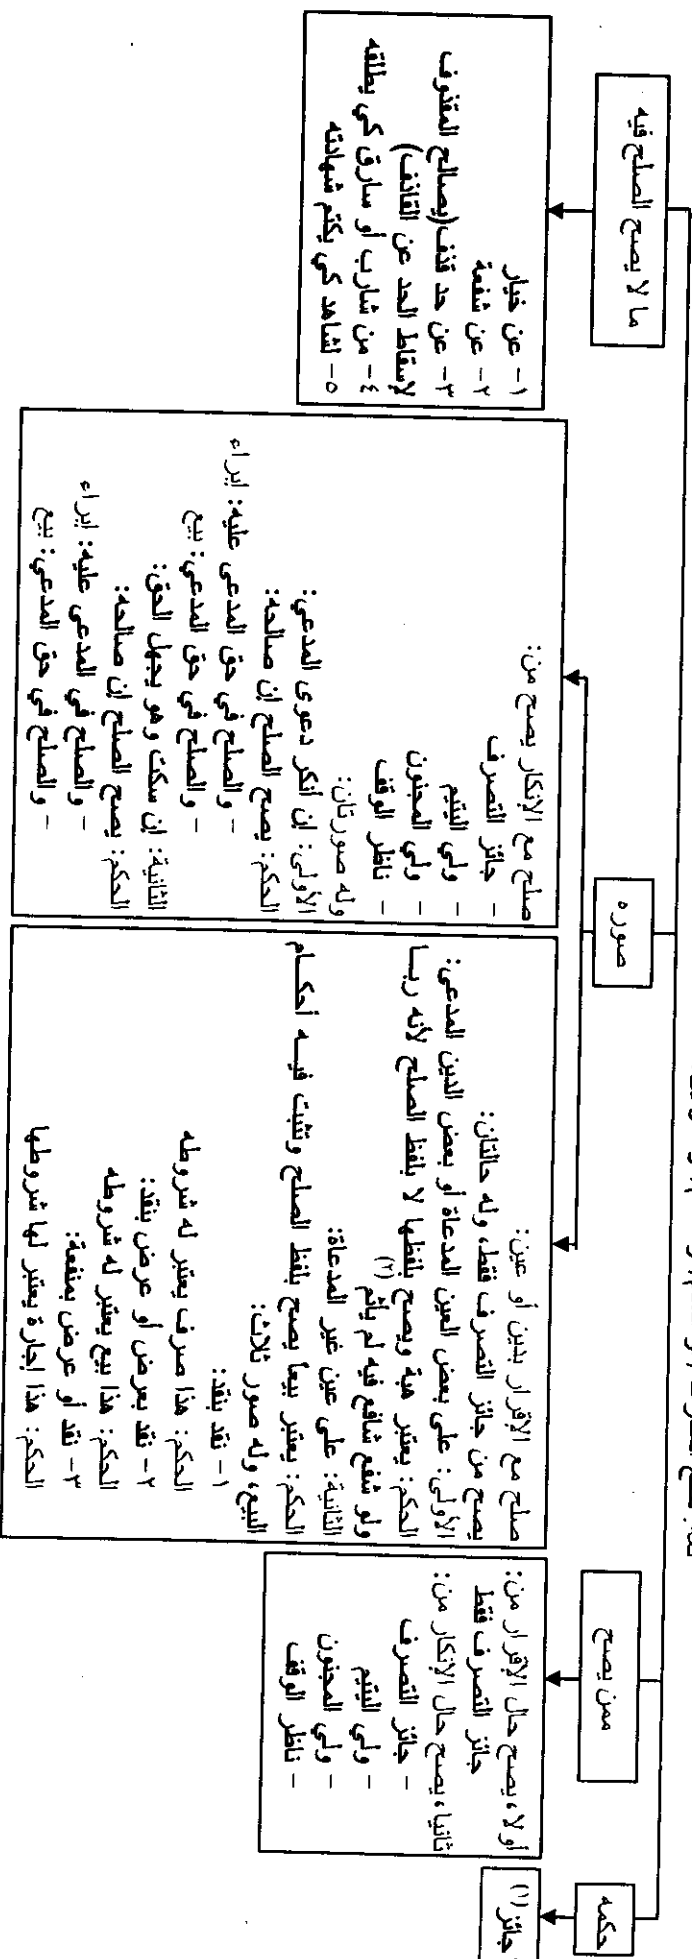 حكمه
جائز (١)
ممن يصح
أولا، يصح حال الإقرار من:
جائز التصرف فقط
ثانيا، يصح حال الإنكار من:
- جائز التصرف
- ولي اليتيم
- ولي المجنون
- ناظر الوقف
صوره
صلح مع الإقرار بدين أو عين:
يصح من جائز التصرف فقط، وله حالتان:
الأولى: على بعض العين المدعاة أو بعض الدين المدعى:
الحكم: يعتبر هبة ويصح بلفظها لا بلفظ الصلح لأنه ربا
ولو شفع شافع فيه لم يأثم (٢)
الثانية: على عين غير المدعاة:
الحكم: يعتبر بيعا يصح بلفظ الصلح وتثبت فيه أحكام
البيع، وله صور ثلاث:
١- نقد بنقد:
الحكم: هذا صرف يعتبر له شروطه
٢- نقد بعرض أو عرض بنقد:
الحكم: هذا بيع يعتبر له شروطه
٣- نقد أو عرض بمنفعة:
الحكم: هذا إجارة يعتبر لها شروطها
صلح مع الإنكار يصح من:
- جائز التصرف
- ولي اليتيم
- ولي المجنون
- ناظر الوقف
وله صورتان:
الأولى: إن أنكر دعوى المدعي:
الحكم: يصح الصلح إن صالحه:
- والصلح في حق المدعى عليه: إبراء
- والصلح في حق المدعي: بيع
الثانية: إن سكت وهو يجهل الحق:
الحكم: يصح الصلح إن صالحه:
- والصلح في المدعى عليه: إبراء
- والصلح في حق المدعي: بيع
ما لا يصح الصلح فيه
١- عن خيار
٢- عن شفعة
٣- عن حد قذف(يصالح المقذوف
لإسقاط الحد عن القاذف)
٤- من شارب أو سارق كي يطلقه
٥- لشاهد كي يكتم شهادته